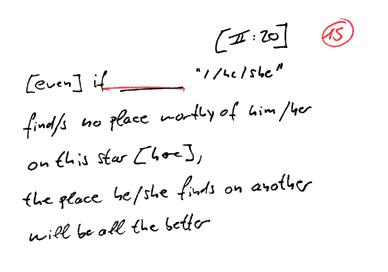 [II:20] 15
[even] if ______ "I/he/she"
find/s no place worthy of him/her
on this star [hoc],
the place he/she finds on another
will be all the better